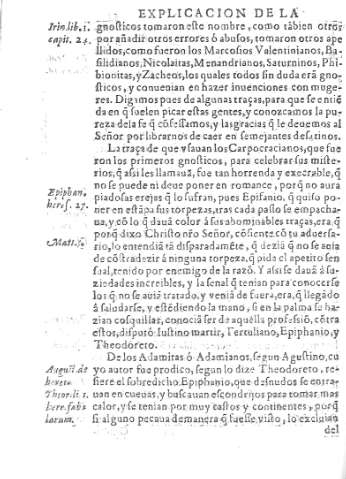 EXPLICACION DE LA
Irin. lib. 1.
capit. 24.
gnosticos tomaron este nombre, como tābien otros
por añadir otros errores ò abusos, tomaron otros ape
llidos, como fueron los Marcosios Valentinianos, Ba-
silidianos, Nicolaitas, Menandrianos, Saturninos, Phi-
bionitas, y Zacheos, los quales todos sin duda erā gno-
sticos, y conuenian en hazer inuenciones con muge-
res. Digamos pues de algunas traças, para que se entiē
da en q̄ suelen picar estas gentes, y conozcamos la pu-
reza de la fe q̄ cōfessamos, y las gracias q̄ le deuemos al
Señor por librarnos de caer en semejantes desatinos.
La traça de que vsauan los Carpocracianos, que fue
ron los primeros gnosticos, para celebrar sus miste-
rios, q̄ assi les llamauā, fue tan horrenda y execrable, q̄
no se puede ni deue poner en romance, porq̄ no aurà
piadosas orejas q̄ lo sufran, pues Epifanio, q̄ quiso po-
Epiphan.
heres. 27.
ner en estāpa sus torpezas, tras cada passo se empacha-
ua, y cō lo q̄ dauā color à sus abominables traças, era, q̄
porq̄ dixo Christo nr̄o Señor, cōsiente cō tu aduersa-
Matt. 5.
rio, lo entendiā tā disparadamēte, q̄ deziā q̄ no se auia
de cōtradezir à ninguna torpeza, q̄ pida el apetito sen
sual, tenido por enemigo de la razō. Y assi se dauā à su-
ziedades increibles, y la señal q̄ tenian para conocerse
los q̄ no se auiā tratado, y veniā de fuera, era, q̄ llegādo
à saludarse, y estēdiendo la mano, si en la palma se ha-
zian cosquillas, conociā ser de aquella professiō, cōtra
estos, disputò Iustino martir, Tertuliano, Epiphanio, y
Theodoreto.
De los Adamitas ò Adamianos, segun Agustino, cu
August. de
heres.
yo autor fue prodico, segun lo dize Theodoreto, re-
fiere el sobredicho Epiphanio, que desnudos se entra-
Theor. li. 1.
uan en cueuas, y buscauan escondrijos para tomar mas
heret. fabu
calor, y se tenian por muy castos y continentes, porq̄
larum.
si alguno pecaua de manera q̄ fuesse visto, lo excluian
del